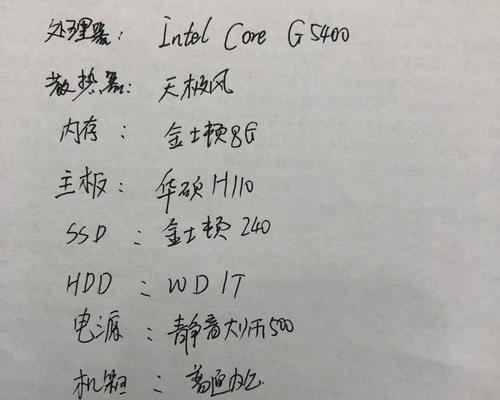 处理器: Intel Core G5400
散热器: 天极风
内存: 金士顿8G
主板: 华硕H110
SSD: 金士顿240
HDD: WD 1T
电源: 静音大师500
机箱: 办公